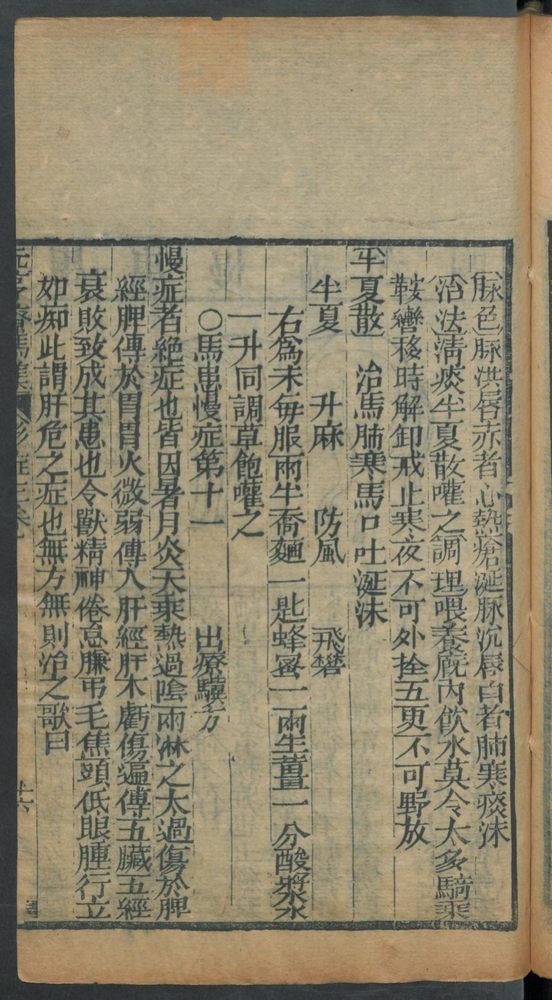 脉色脉洪唇赤者心熱瘡涎脉沉唇白者肺寒痰沫
治法清痰半夏散嚾之調理喂養廐内飲水莫令太多騎乘
鞍轡移時解卸戒止寒夜不可外拴五更不可野放
半夏散 治馬肺寒馬口吐涎沫
半夏 升麻 防風 飛礬
右爲末每服兩半喬麵一匙蜂蜜二兩生薑一分酸漿水
一升同調草飽嚾之
○馬患慢症第十一 出療驥方
慢症者絶症也皆因暑月炎天乘熱過陰雨淋之太過傷於脾
經脾傳於胃胃火微弱傳入肝經肝木虧傷遍傳五臟五經
衰敗致成其患也令獸精神倦怠膁弔毛焦頭低眼腫行立
如痴此謂肝危之症也無方無則治之歌曰
元亨療馬集
十六